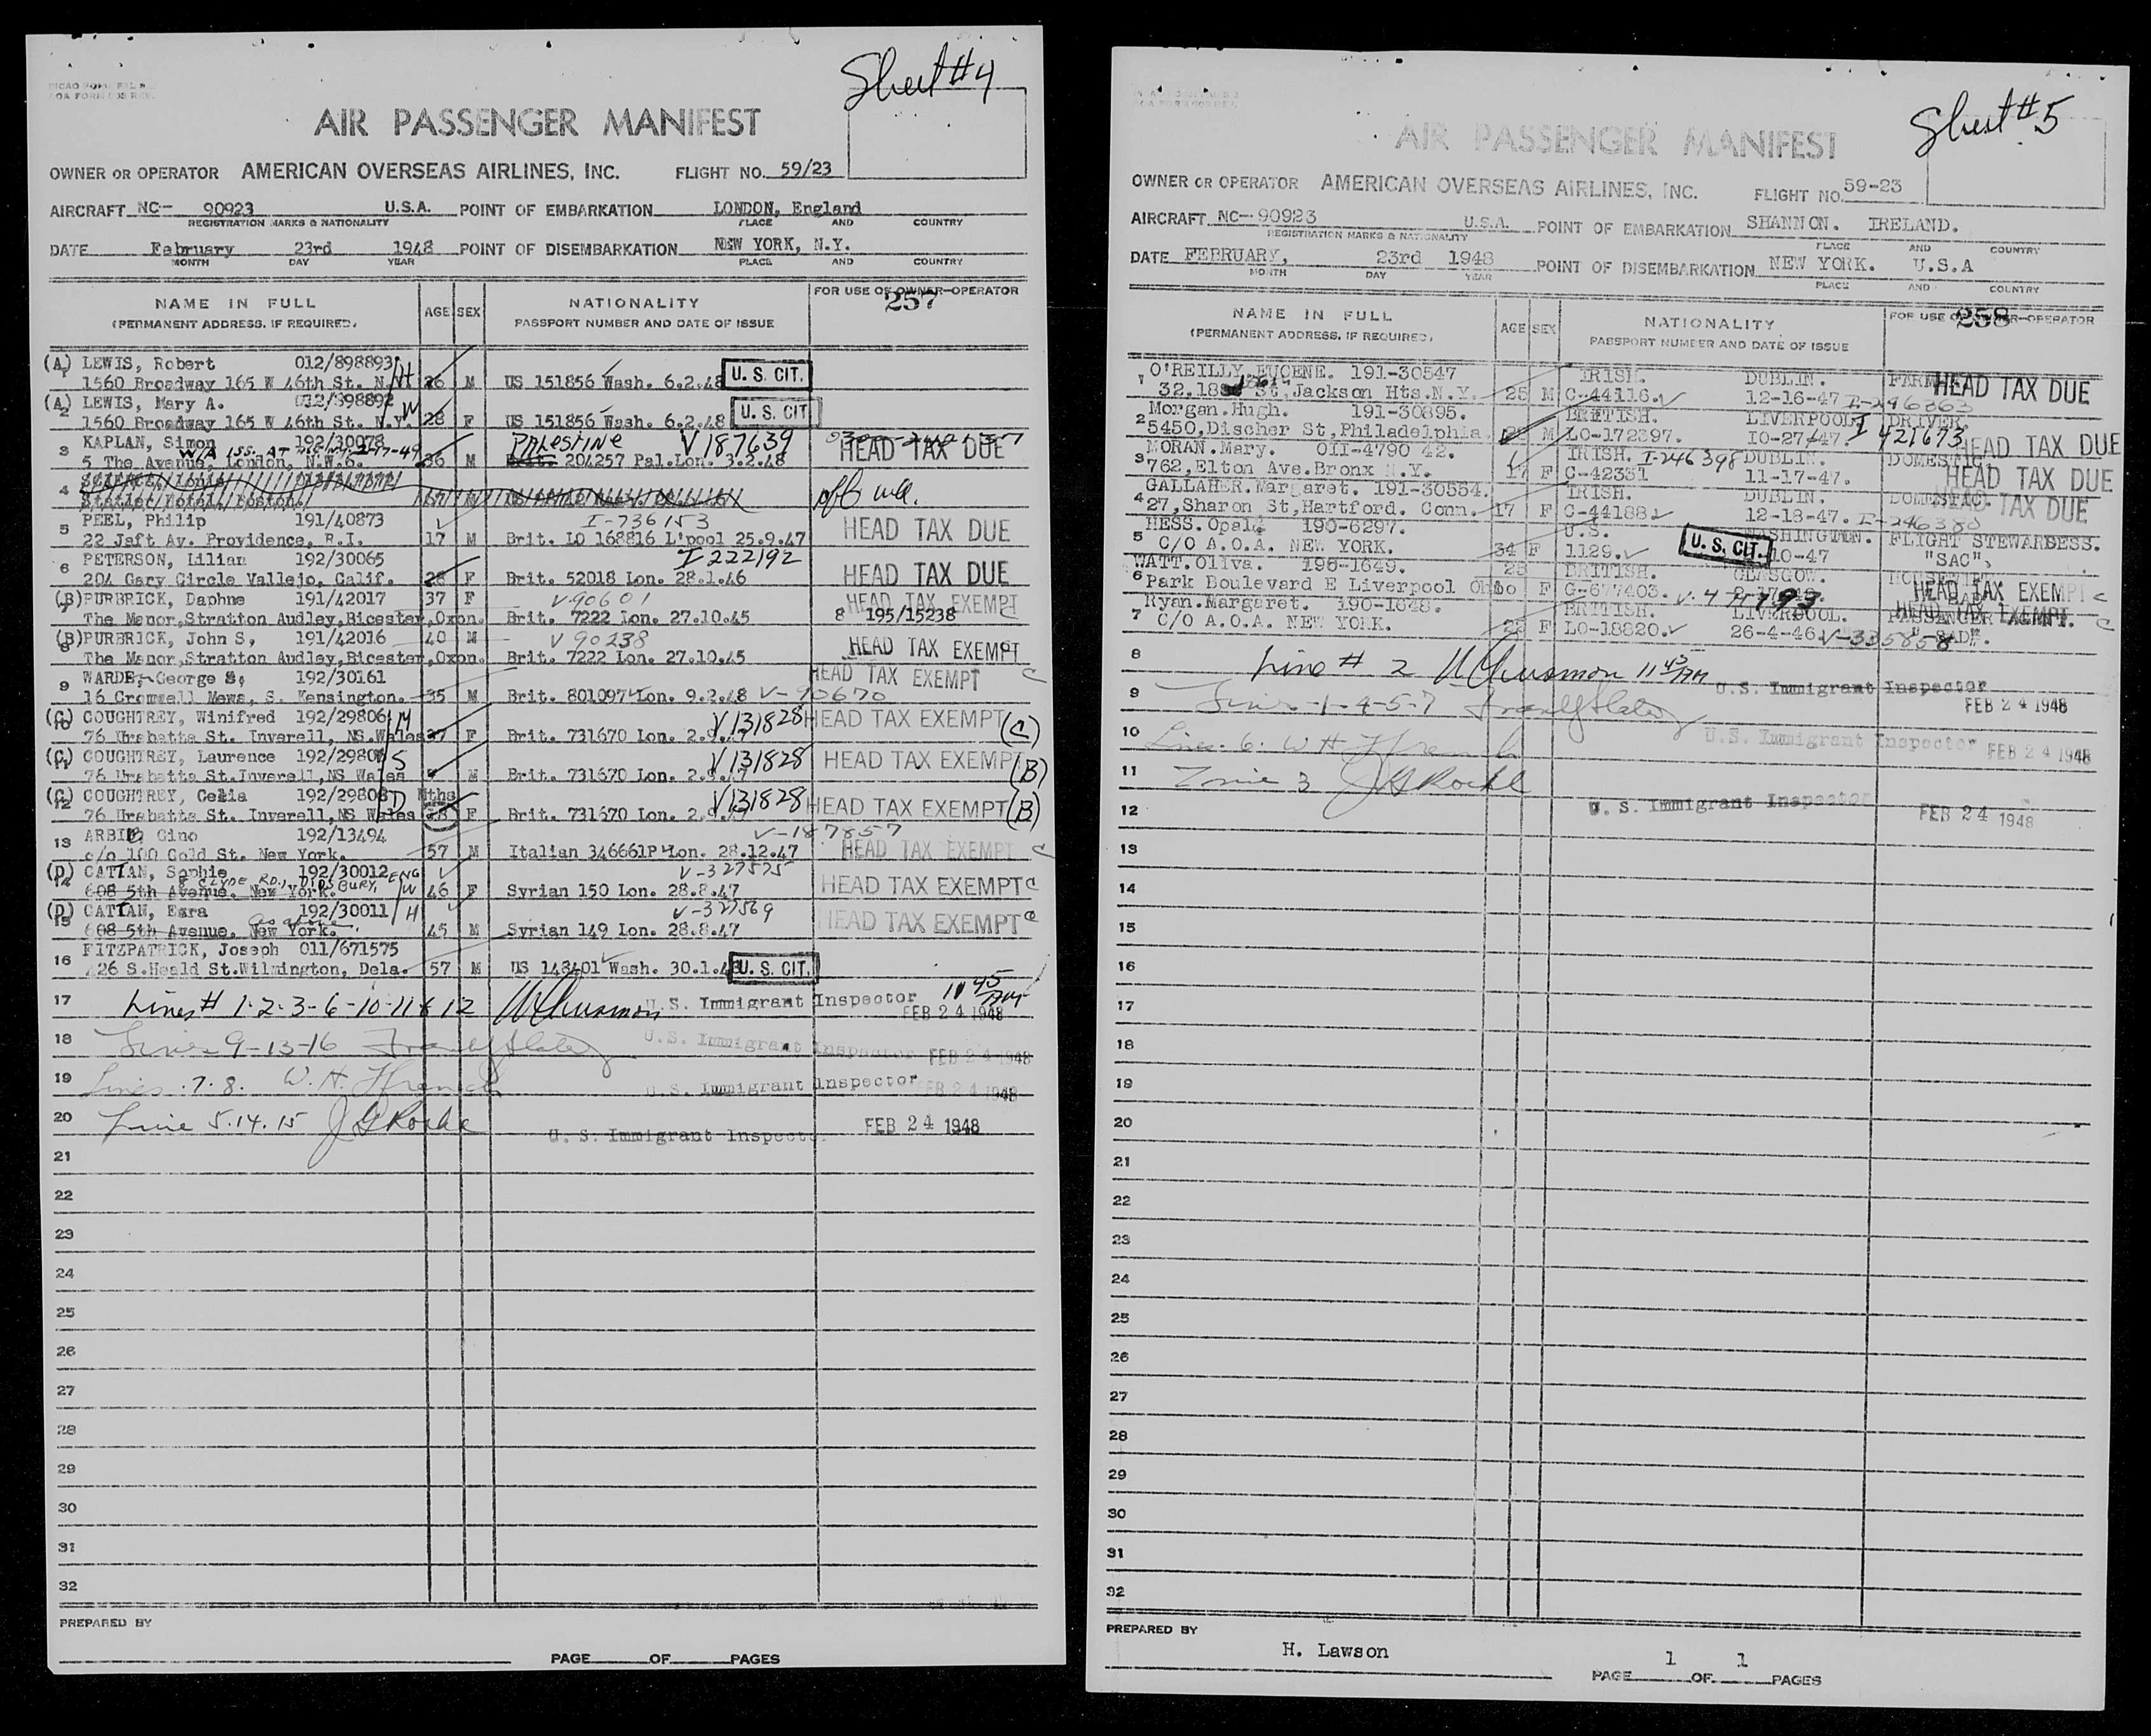 Sheet #4
AIR PASSENGER MANIFEST
OWNER OR OPERATOR AMERICAN OVERSEAS AIRLINES, INC. FLIGHT NO. 59/23
AIRCRAFT NC- 90923 U.S.A. POINT OF EMBARKATION LONDON, England
REGISTRATION MARKS & NATIONALITY PLACE AND COUNTRY
DATE February 23rd 1948 POINT OF DISEMBARKATION NEW YORK, N.Y.
MONTH DAY YEAR PLACE AND COUNTRY
NAME IN FULL AGE SEX NATIONALITY FOR USE OF OWNER-OPERATOR
(PERMANENT ADDRESS, IF REQUIRED) PASSPORT NUMBER AND DATE OF ISSUE 257
(A) LEWIS, Robert 012/898893 H
1 1560 Broadway 165 W 46th St. N.Y. M US 151856 Wash. 6.2.48 U. S. CIT.
(A) LEWIS, Mary A. 012/898892 W
2 1560 Broadway 165 W 46th St. N.Y. 28 F US 151856 Wash. 6.2.48 U. S. CIT.
KAPLAN, Simon 192/30078 PALESTINE V187639
3 5 The Avenue, London, N.W.6. 36 M 204257 Pal.Lon. 3.2.48 HEAD TAX DUE
4 Statler Hotel, Boston.
PEEL, Philip 191/40873 I-736153
5 22 Jaft Av. Providence, R.I. 17 M Brit. LO 168816 L'pool 25.9.47 HEAD TAX DUE
PETERSON, Lilian 192/30065 I 222192
6 204 Gary Circle Vallejo, Calif. 28 F Brit. 52018 Lon. 28.1.46 HEAD TAX DUE
(B) PURBRICK, Daphne 191/42017 37 F V-90601 HEAD TAX EXEMPT
The Manor, Stratton Audley, Bicester, Oxon. Brit. 7222 Lon. 27.10.45 8 195/15238
(B) PURBRICK, John S. 191/42016 40 M V 90238
8 The Manor, Stratton Audley, Bicester, Oxon. Brit. 7222 Lon. 27.10.45 HEAD TAX EXEMPT
WARDE, George S. 192/30161 HEAD TAX EXEMPT C
9 16 Cromwell Mews, S. Kensington. 35 M Brit. 801097 Lon. 9.2.48 V-90670
(C) COUGHTREY, Winifred 192/29806 M V131828 HEAD TAX EXEMPT (C)
10 76 Urabatta St. Inverell, NS Wales 37 F Brit. 731670 Lon.
(C) COUGHTREY, Laurence 192/29806 S V131828 HEAD TAX EXEMPT (B)
11 76 Urabatta St. Inverell, NS Wales M Brit. 731670 Lon.
(C) COUGHTREY, Celia 192/29808 D Mths V131828 HEAD TAX EXEMPT (B)
12 76 Urabatta St. Inverell, NS Wales F Brit. 731670 Lon.
ARBIB, Gino 192/13494 V-187857
13 c/o 100 Gold St. New York. 57 M Italian 346661P Lon. 28.12.47 HEAD TAX EXEMPT C
(D) CATTAN, Sophie 192/30012 V-327575
8 CLYDE RD., DIDSBURY, ENG
14 608 5th Avenue, New York. W 46 F Syrian 150 Lon. 28.8.47 HEAD TAX EXEMPT C
(D) CATTAN, Ezra 192/30011 H V-327569
15 608 5th Avenue, New York. 45 M Syrian 149 Lon. 28.8.47 HEAD TAX EXEMPT C
FITZPATRICK, Joseph 011/671575
16 426 S.Heald St.Wilmington, Dela. 57 M US 148401 Wash. 30.1.48 U. S. CIT.
17 Lines # 1-2-3-6-10-11 & 12 U.S. Immigrant Inspector 11 45 AM FEB 24 1948
18 Lines 9-13-16 U.S. Immigrant Inspector FEB 24 1948
19 Lines 7.8. W. H. U.S. Immigrant Inspector FEB 24 1948
20 Line 5.14.15 J G Roche U. S. Immigrant Inspector FEB 24 1948
21
22
23
24
25
26
27
28
29
30
31
32
PREPARED BY
PAGE OF PAGES
Sheet #5
AIR PASSENGER MANIFEST
OWNER OR OPERATOR AMERICAN OVERSEAS AIRLINES, INC. FLIGHT NO. 59-23
AIRCRAFT NC- 90923 U.S.A. POINT OF EMBARKATION SHANNON. IRELAND.
REGISTRATION MARKS & NATIONALITY PLACE AND COUNTRY
DATE FEBRUARY, 23rd 1948 POINT OF DISEMBARKATION NEW YORK. U.S.A
MONTH DAY YEAR PLACE AND COUNTRY
NAME IN FULL AGE SEX NATIONALITY FOR USE OF OWNER-OPERATOR
(PERMANENT ADDRESS, IF REQUIRED) PASSPORT NUMBER AND DATE OF ISSUE 258
O'REILLY.EUGENE. 191-30547 IRISH. DUBLIN. HEAD TAX DUE
1 St, Jackson Hts.N.Y. 25 M C-44116. 12-16-47 I-246363
Morgan.Hugh. 191-30895. BRITISH. LIVERPOOL. DRIVER.
2 5450, Discher St, Philadelphia. M LO-172397. 10-27-47. I 421673 HEAD TAX DUE
MORAN.Mary. OII-4790 42. IRISH. I-246398 DUBLIN. DOMESTIC
3 762, Elton Ave.Bronx N.Y. 17 F C-42331 11-17-47. HEAD TAX DUE
GALLAHER.Margaret. 191-30554. IRISH. DUBLIN. DOMESTIC.
4 27, Sharon St, Hartford. Conn. 17 F C-44188 12-18-47. I-246380 HEAD TAX DUE
HESS. Opal. 190-6297. U.S. WASHINGTON. FLIGHT STEWARDESS.
5 C/O A.O.A. NEW YORK. 34 F 1129. U. S. CIT. 10-47 "SAC",
WATT. Oliva. 190-1649. BRITISH. GLASGOW.
6 Park Boulevard E Liverpool Ohio F C-677403. HEAD TAX EXEMPT C
Ryan.Margaret. 190-1648. BRITISH. LIVERPOOL. PASSENGER HEAD TAX EXEMPT. C
7 C/O A.O.A. NEW YORK. F LO-18820. 26-4-46. V-335858 "SAD".
8 Line # 2 11 45 AM U.S. Immigrant Inspector
9 Lines-1-4-5-7 FEB 24 1948
10 Line. 6. W H U.S. Immigrant Inspector FEB 24 1948
11 Line 3 J G Roche
12 U. S. Immigrant Inspector FEB 24 1948
13
14
15
16
17
18
19
20
21
22
23
24
25
26
27
28
29
30
31
32
PREPARED BY
H. Lawson
PAGE 1 OF 1 PAGES